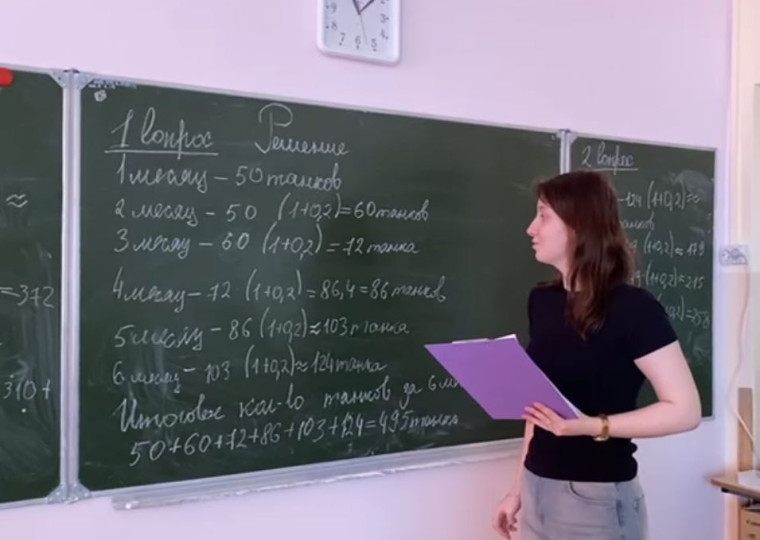 ≈
=372
310+
1 вопрос Решение
1 месяц – 50 танков
2 месяц – 50 (1+0,2)=60 танков
3 месяц – 60 (1+0,2)=72 танка
4 месяц – 72 (1+0,2)=86,4=86 танков
5 месяц – 86 (1+0,2)≈103 танка
6 месяц – 103 (1+0,2)≈124 танка
Итоговое кол-во танков за 6 м
50+60+72+86+103+124=495 танка
2 вопрос
124 (1+0,2)≈
танков
(1+0,2)≈179
(1+0,2)≈215
0,2)≈258